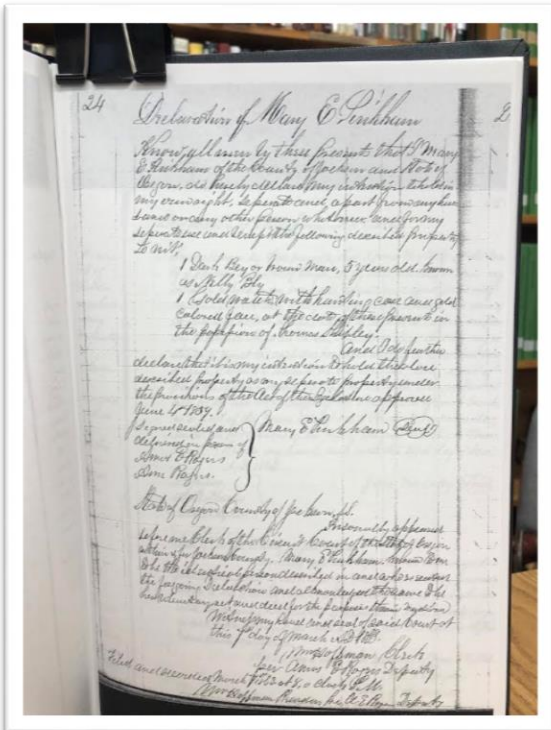 24
2
Declaration of Mary E Pinkham
Know all men by these presents that I Mary
E Pinkham of the County of Jackson and State of
Oregon, do hereby declare my intention to hold in
my own right, separate and apart from my hus
band or any other person and for my
separate use and benefit the following described property
to wit,
1 Dark Bay or brown Mare, 5 years old known
as Nelly Bly
1 Gold watch with hunting case and gold
colored face, at the date of these presents in
the possession of
And I do further
declare that it is my intention to hold the above
described property as my separate property under
the provisions of the Act of the approved
June 4th
Signed sealed and
delivered in presence of
Amos E Rogers
Rogers.
Mary E Pinkham Seal
State of Oregon County of Jackson, ss.
Personally appeared
before me Clerk of the Circuit Court of the State of Oregon
within & for Jackson County. Mary E Pinkham known to me
to be the identical person described in and who executed
the foregoing Declaration and acknowledged the same to be
her voluntary act and deed for the purposes therein
Witness my hand and seal of said Court at
this day of March A.D.
Wm Hoffman, Clerk
per Amos E Rogers Deputy
Filed and recorded March at o clock P.M.
Wm Hoffman Recorder per A E Rogers Deputy